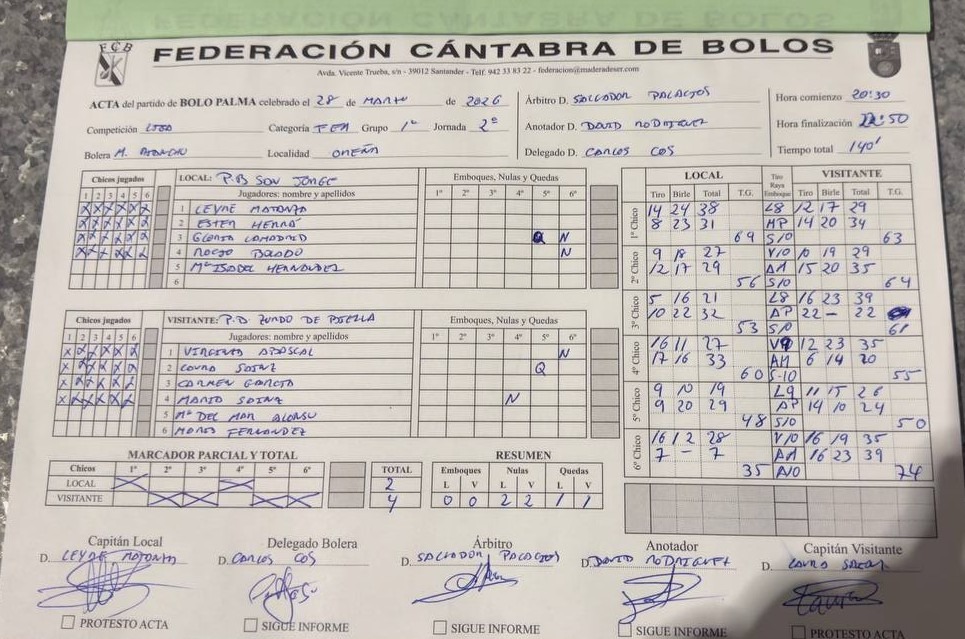 FEDERACIÓN CÁNTABRA DE BOLOS
FCB
Avda. Vicente Trueba, s/n - 39012 Santander - Telf. 942 33 83 22 - federacion@maderadeser.com
ACTA del partido de BOLO PALMA celebrado el 28 de MARZO de 2026
Competición LIGA Categoría FEM Grupo 1ª Jornada 2ª
Bolera M. Localidad OREÑA
Árbitro D. SALVADOR PALACIOS
Anotador D. DAVID RODRIGUEZ
Delegado D. CARLOS COS
Hora comienzo 20:30
Hora finalización 22:50
Tiempo total 140'
Chicos jugados LOCAL: P.B SAN JORGE Emboques, Nulas y Quedas
1 2 3 4 5 6 Jugadores: nombre y apellidos 1º 2º 3º 4º 5º 6º
X X X X X X 1 LEYRE
X X X X X X 2 ESTER HERRÁ
X X X X X X 3 GLORIA LAMADRID Q N
X X X X X X 4 ROCIO N
5 Mª ISABEL HERNANDEZ
6
Chicos jugados VISITANTE: P.B ZURDO DE BIELLA Emboques, Nulas y Quedas
1 2 3 4 5 6 Jugadores: nombre y apellidos 1º 2º 3º 4º 5º 6º
X X X X X X 1 VIRGINIA N
X X X X X X 2 LAURA SAINZ Q
X X X X X X 3 CARMEN GARCIA
X X X X X X 4 MARIO SAINZ N
5 Mª DEL MAR ALONSO
6 FERNANDEZ
MARCADOR PARCIAL Y TOTAL
Chicos 1º 2º 3º 4º 5º 6º TOTAL
LOCAL X X 2
VISITANTE X X X X 4
RESUMEN
Emboques Nulas Quedas
L V L V L V
0 0 2 2 1 1
LOCAL Tiro Raya Emboque VISITANTE
Tiro Birle Total T.G. Tiro Birle Total T.G.
1º Chico
14 24 38 L8 12 17 29
8 23 31 AP 14 20 34
69 S/O 63
2º Chico
9 18 27 V10 10 19 29
12 17 29 AM 15 20 35
56 S/O 64
3º Chico
5 16 21 L8 16 23 39
10 22 32 AP 22 - 22
53 S/O 61
4º Chico
16 11 27 V9 12 23 35
17 16 33 AM 6 14 20
60 S-10 55
5º Chico
9 10 19 L9 11 15 26
9 20 29 AP 14 10 24
48 S/O 50
6º Chico
16 12 28 V10 16 19 35
7 - 7 AM 16 23 39
35 A/O 74
Capitán Local
D. LEYRE
PROTESTO ACTA
Delegado Bolera
D. CARLOS COS
SIGUE INFORME
Árbitro
D. SALVADOR PALACIOS
SIGUE INFORME
Anotador
D. DAVID RODRIGUEZ
SIGUE INFORME
Capitán Visitante
D. LAURA SAINZ
PROTESTO ACTA